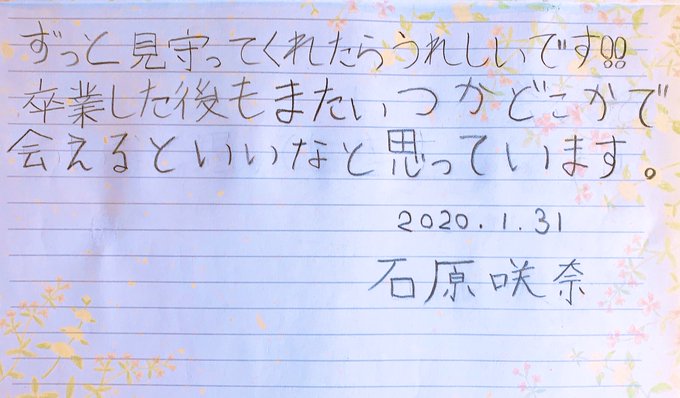 ずっと見守ってくれたらうれしいです!!
卒業した後もまたいつかどこかで
会えるといいなと思っています。
2020.1.31
石原咲奈